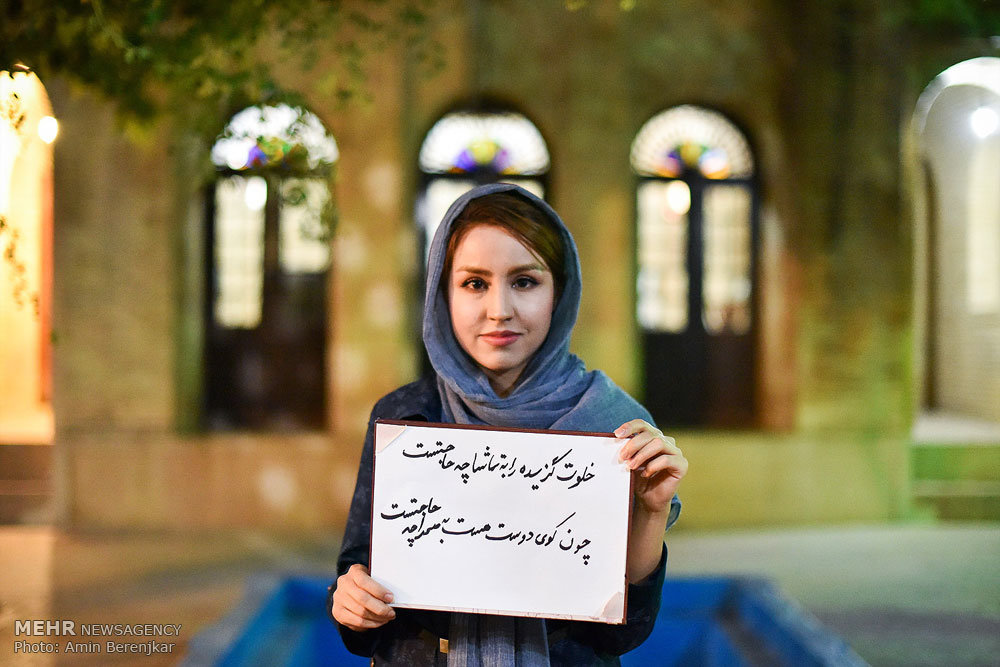 خلوت گزیده را به تماشا چه حاجتست
چون کوی دوست هست به صحرا چه حاجتست
MEHR NEWSAGENCY
Photo: Amin Berenjkar